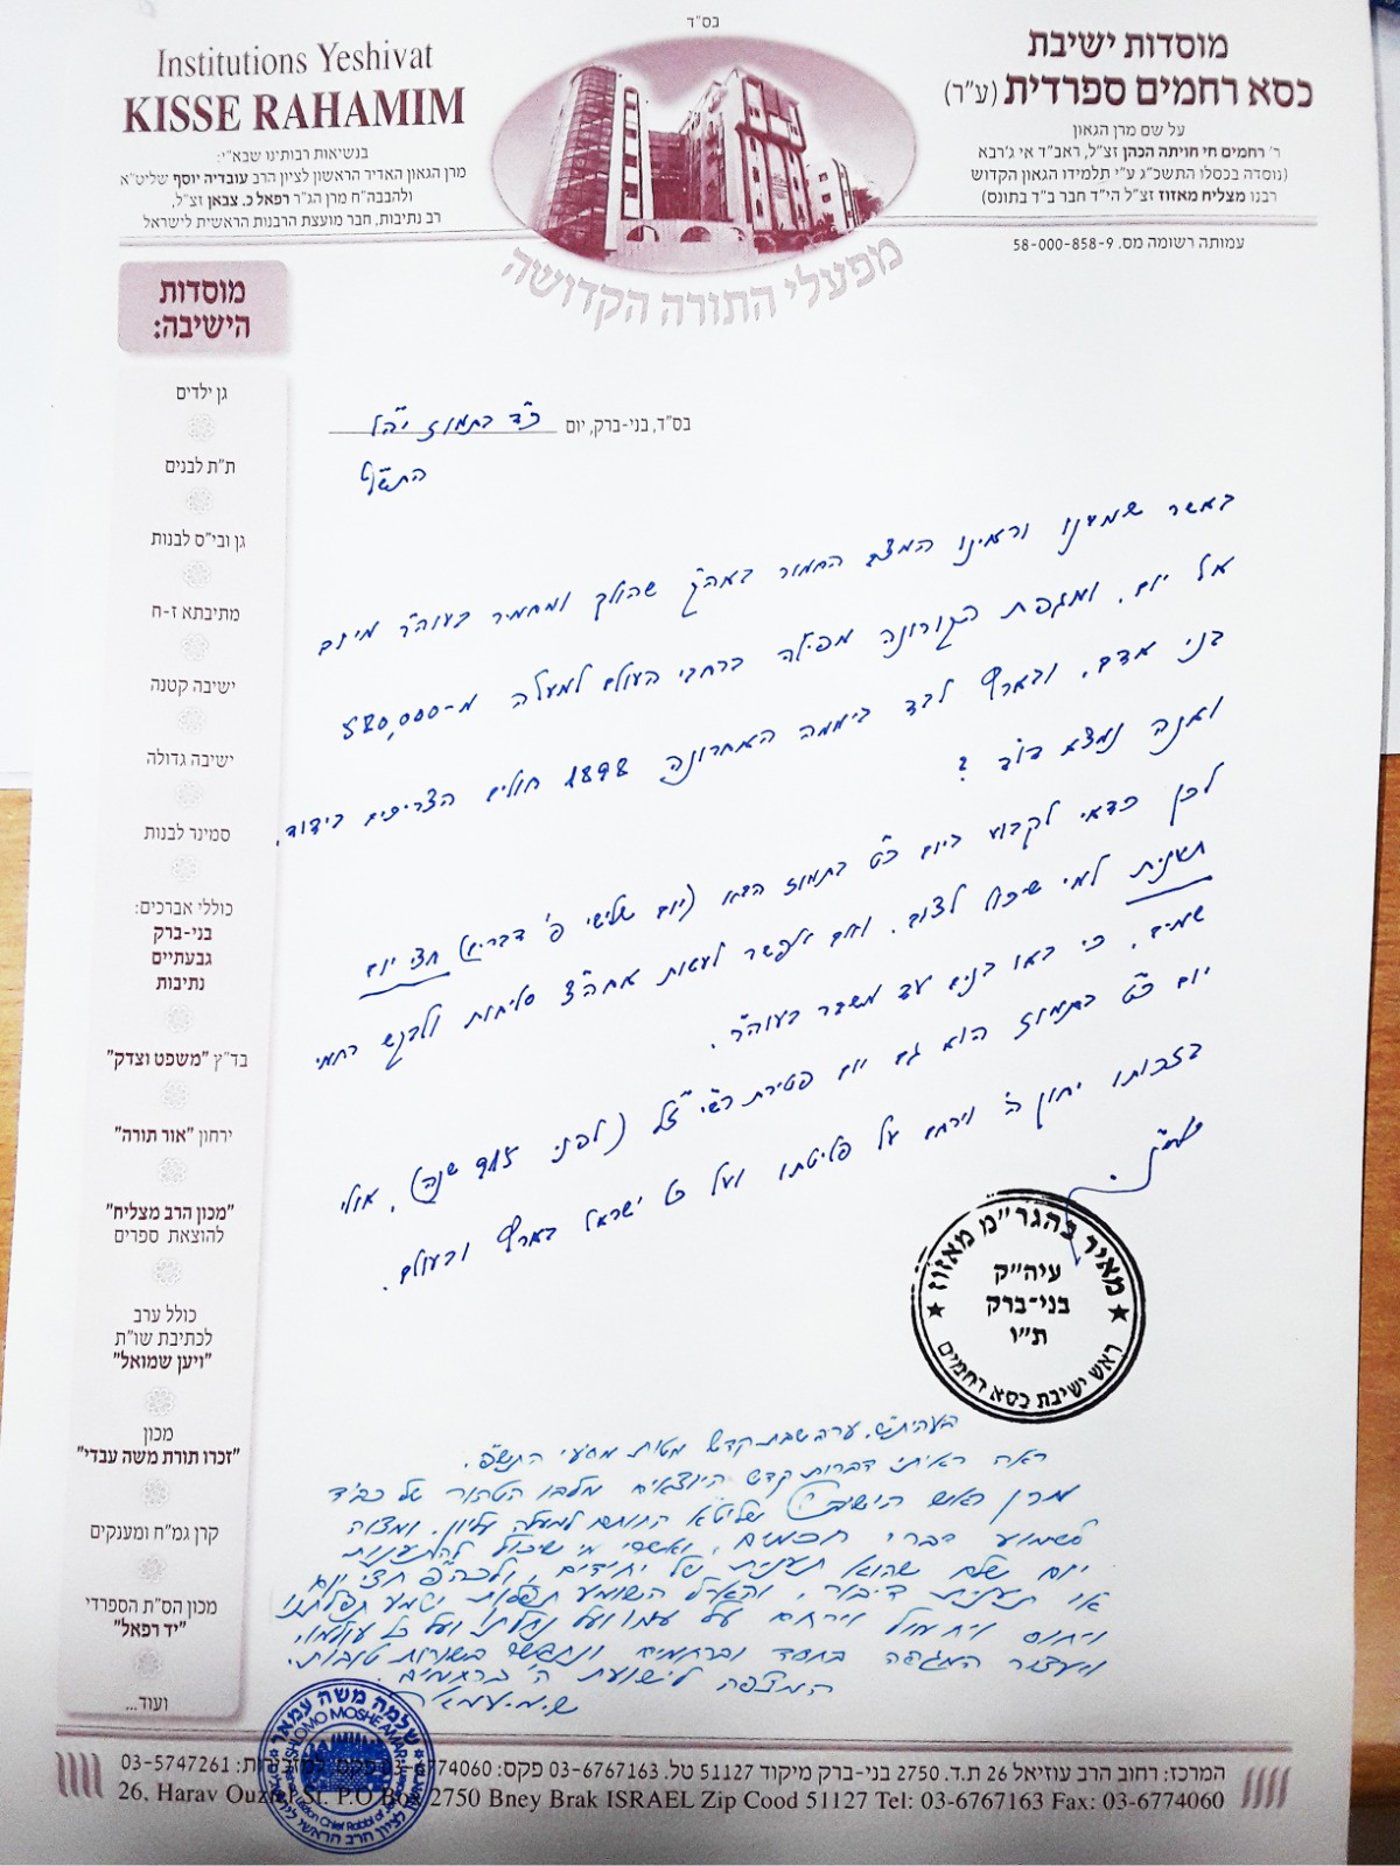 בס"ד
Institutions Yeshivat
KISSE RAHAMIM
בנשיאות רבותינו שבא"י:
מרן הגאון האדיר הראשון לציון הרב עובדיה יוסף שליט"א
ולהבבה"ח מרן הג"ר רפאל כ. צבאן זצ"ל,
רב נתיבות, חבר מועצת הרבנות הראשית לישראל
מוסדות ישיבת
כסא רחמים ספרדית (ע"ר)
על שם מרן הגאון
ר' רחמים חי חויתה הכהן זצ"ל, ראב"ד אי ג'רבא
(נוסדה בכסלו התשכ"ג ע"י תלמידו הגאון הקדוש
רבנו מצליח מאזוז זצ"ל הי"ד חבר ב"ד בתונס)
עמותה רשומה מס. 58-000-858-9
מפעלי התורה הקדושה
מוסדות
הישיבה:
גן ילדים
ת"ת לבנים
גן ובי"ס לבנות
מתיבתא ז-ח
ישיבה קטנה
ישיבה גדולה
סמינר לבנות
כוללי אברכים:
בני-ברק
גבעתיים
נתיבות
בד"ץ "משפט וצדק"
ירחון "אור תורה"
"מכון הרב מצליח"
להוצאת ספרים
כולל ערב
לכתיבת שו"ת
"ויען שמואל"
מכון
"זכרו תורת משה עבדי"
קרן גמ"ח ומענקים
מכון הס"ת הספרדי
"יד רפאל"
ועוד...
בס"ד, בני-ברק, יום כ"ד בתמוז
באשר שמענו וראינו המצב החמור באה"ק שהולך ומחמיר בעוה"ר מיום
אל יום. ומגפת הקורונה מפילה ברחבי העולם למעלה מ-580,000
בני אדם. ובארץ לבד ביממה האחרונה 1898 חולים הצריכים בידוד.
ואנה נמצא טוב?
לכן כדאי לקבוע ביום כ"ט בתמוז הבא (יום שלישי פ' דברים) חצי יום
תענית למי שיכול לצום. ואם אפשר לעשות אחה"צ סליחות ולבקש רחמי
שמים. כי באו בנים עד משבר בעוה"ר.
יום כ"ט בתמוז הוא גם יום פטירת רש"י ז"ל (לפני 915 שנה). אולי
בזכותו יחון ה' וירחם על פליטתו ועל כ"י ישראל בארץ ובעולם.
מאיר בהגר"מ מאזוז
עיה"ק
בני-ברק
ת"ו
ראש ישיבת כסא רחמים
בעהית"ש. ערב שבת קדש מטות מסעי התש"פ.
ראה ראיתי דברות קדש היוצאים מלבו הטהור של כבי"ד
מרן ראש הישיבה שליט"א החותם למעלה עליון. ומצוה
לשמוע דברי חכמים, ואשרי מי שיכול להתענות
יום שלם שהוא תענית של יחידים, ולכה"פ חצי יום
או תענית דיבור, והא-ל השומע תפלות ישמע תפלתנו
ויחוס ויחמול וירחם על עמו ועל נחלתו ועל כל עולמו,
ויעצור המגפה בחסד וברחמים ונתבשר בשורות טובות.
המצפה לישועת ה' ברחמים.
שלמה משה עמאר
SHLOMO MOSHE AMAR
המרכז: רחוב הרב עוזיאל 26 ת.ד. 2750 בני-ברק מיקוד 51127 טל. 03-6767163 פקס: 03-6774060 פקס למזכירות: 03-5747261
26, Harav Ouziel St. P.O Box 2750 Bney Brak ISRAEL Zip Cood 51127 Tel: 03-6767163 Fax: 03-6774060